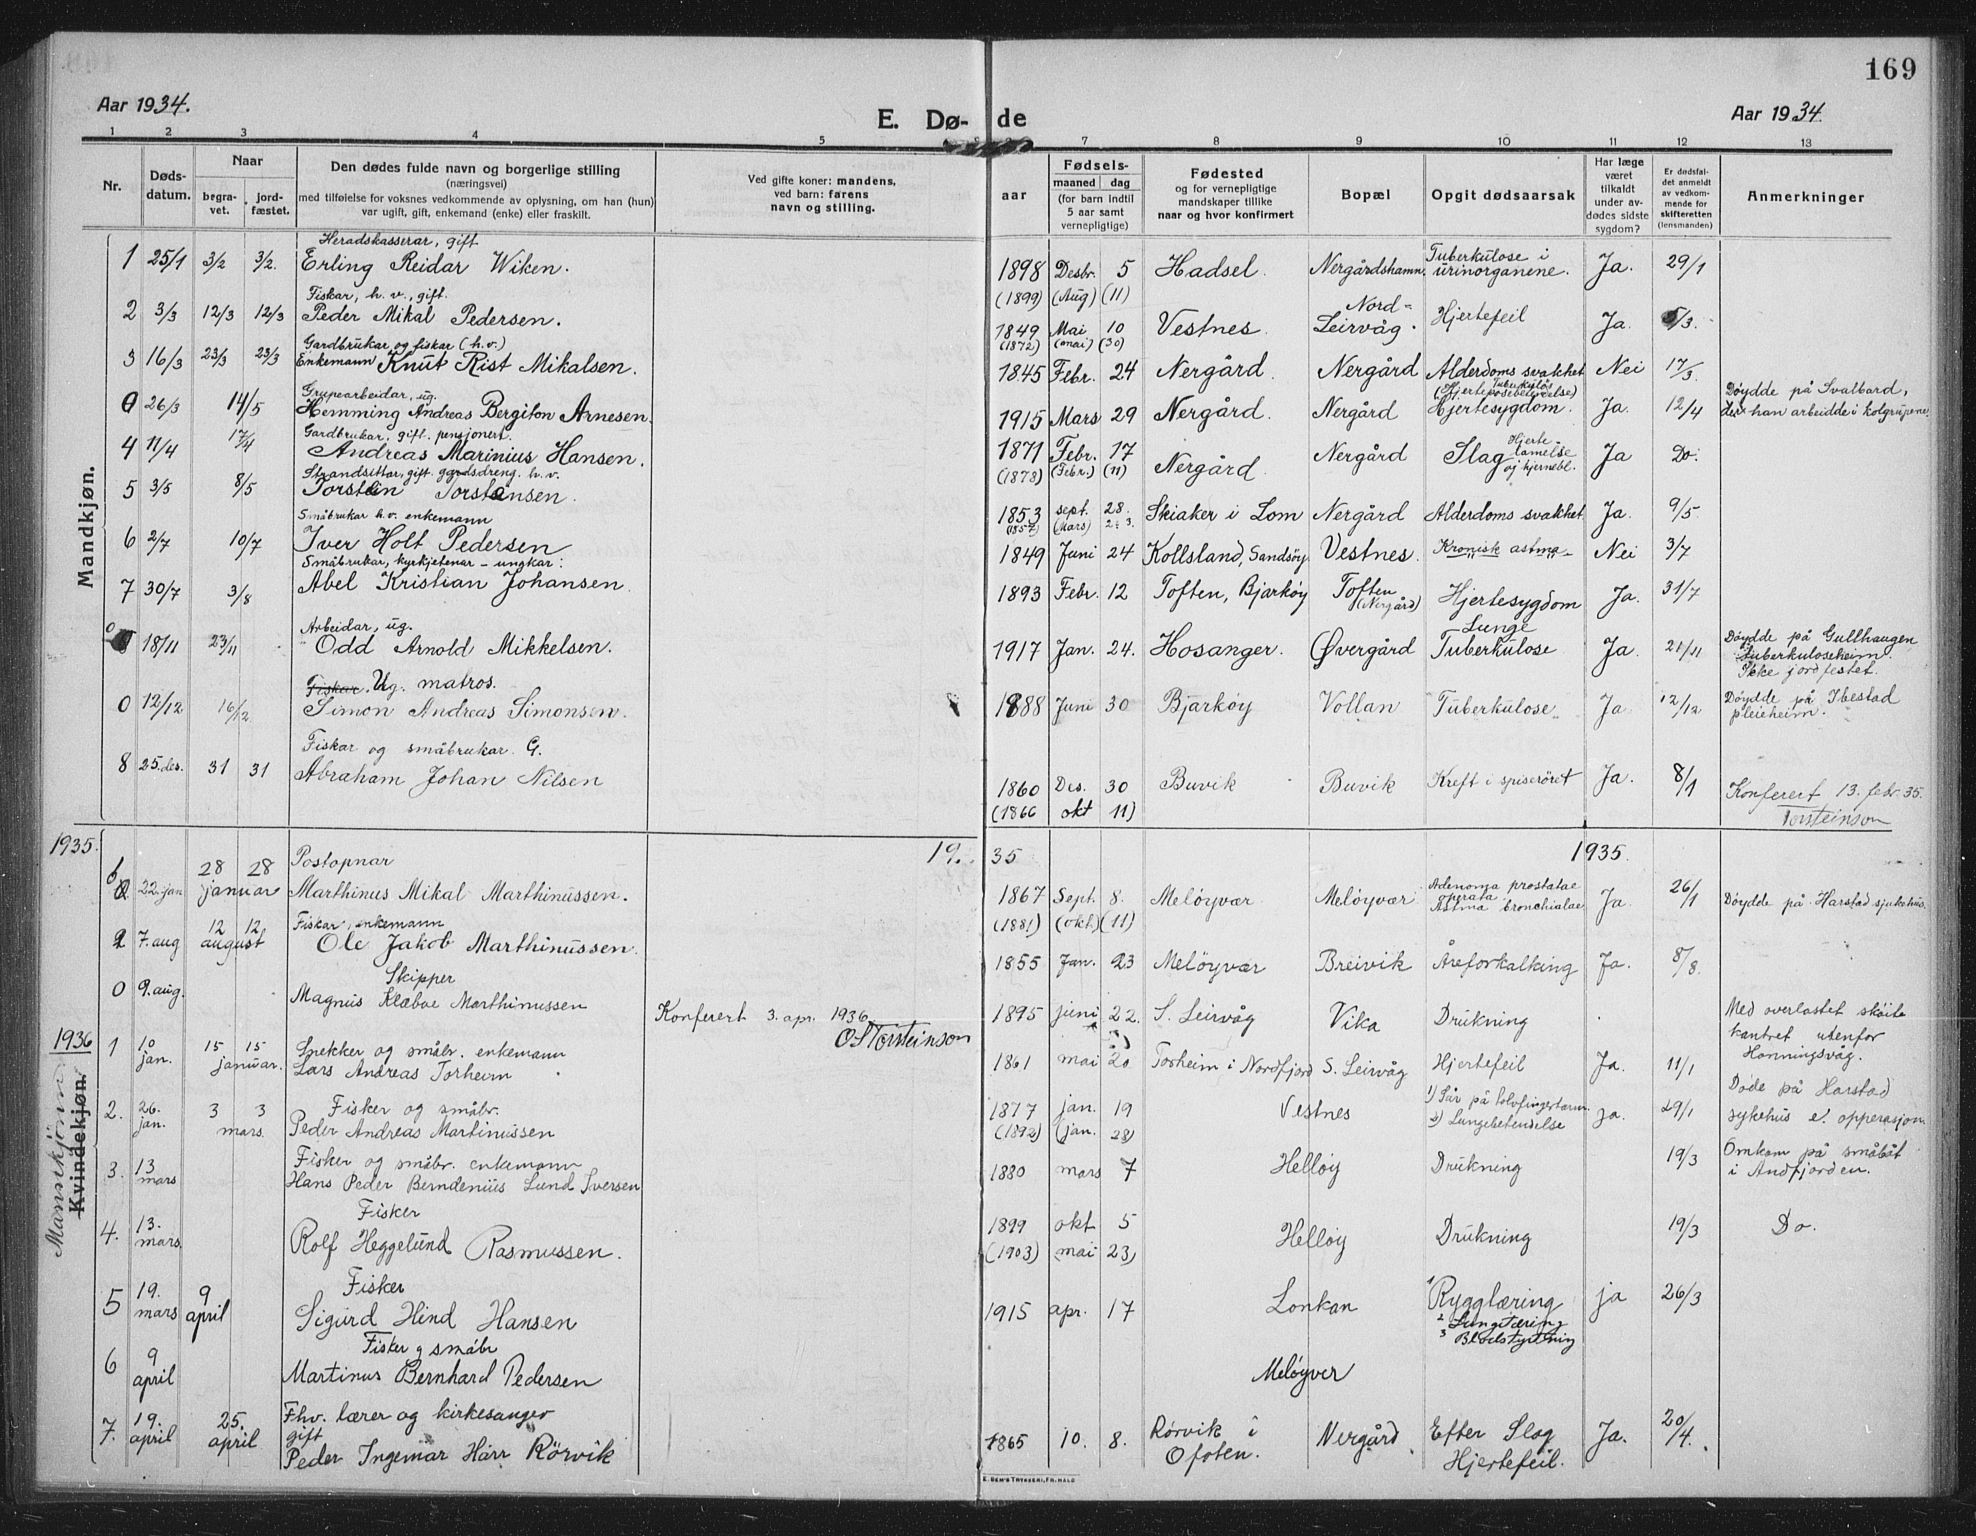 169
Aar 1934.
E. Dø- de
Aar 1934.
1 2 3 4 5 6 7 8 9 10 11 12 13
Nr.
Døds-
datum.
Naar
begra-
vet.
jord-
fæstet.
Den dødes fulde navn og borgerlige stilling
(næringsvei)
med tilføielse for voksnes vedkommende av oplysning, om han (hun)
var ugift, gift, enkemand (enke) eller fraskilt.
Ved gifte koner: mandens,
ved barn: førens
navn og stilling.
Fødsels-
aar
maaned dag
(for barn indtil
5 aar samt
vernepligtige)
Fødested
og for vernepligtige
mandskaper tillike
naar og hvor konfirmert
Bopæl
Opgit dødsaarsak
Har læge
været
tilkaldt
under av-
dødes sidste
sygdom?
Er dødsfal-
det anmeldt
av vedkom-
mende for
skifteretten
(lensmanden)
Anmerkninger
Mandkjøn.
Heradskasserar, gift
1 25/1 3/2 3/2. Erling Reidar Wiken. 1898 Desbr. 5 Hadsel. Nergårdshamn. Tuberkulose i urinorganene. Ja. 29/1
(1899) (Aug) (11)
Fiskar, h. v., gift.
2 3/3 12/3 12/3 Peder Mikal Pedersen. 1849 Mai 10 Vestnes. Nord-Leirvåg. Hjertefeil Ja. 5/3.
(1872) (mai) (30)
Gardbrukar og fiskar (h.v.)
3 16/3 23/3 23/3 Enkemann Knut Rist Mikalsen. 1845 Febr. 24 Nergård. Nergård Alderdoms svakhet Nei 17/3.
Grupearbeidar, ug.
0 26/3 14/5 Hemming Andreas Bergiton Arnesen. 1915 Mars 29 Nergård. Nergård Hjertesygdom. Ja. 12/4 Døydde på Svalbard,
der han arbeidde i kolgrupene
Gardbrukar, gift. pensjonert.
4 11/4 17/4 Andreas Marinius Hansen. 1871 Febr. 17 Nergård. Nergård Slag Hjerte-lamelse Ja Do.
(1878) (Febr.) (11) og hjernebl.
Strandsitter, gift gardsdreng. h. v.
5 3/5 8/5 Torstein Torstensen. 1853 sept. 28. Skiaker i Lom Nergård Alderdoms svakhet Ja. 9/5
(1857) (Mars)
Småbrukar h.v. enkemann
6 2/7 10/7 Iver Holt Pedersen 1849 Juni 24 Kollsland, Sandsøy. Vestnes. Kronisk astma Nei 3/7
Småbrukar, kyrkjetenar - ungkar.
7 30/7 3/8 Abel Kristian Johansen. 1893 Febr. 12 Toften, Bjarkøy Toften (Nergård) Hjertesygdom Ja. 31/7
Arbeidar, ug.
0 18/11 23/11 Odd Arnold Mikkelsen. 1917 Jan. 24. Hosanger. Øvergård Lunge Tuberkulose Ja. 21/11 Døydde på Gullhaugen
Tuberkuloseheim.
Ikke jordfestet.
Fiskar. Ug. matros.
0 12/12 16/12 Simon Andreas Simonsen. 1888 Juni 30 Bjarkøy Vollan Tuberkulose Ja 12/12 Døydde på Ibestad
pleieheim.
Fiskar og småbrukar. G.
8 25. des. 31 31 Abraham Johan Nilsen 1860 Des. 30 Buvik Buvik Kreft i spiserøret Ja. 8/1
(1866 okt 11)
Konferert 13. febr. 35.
Torsteinson
1935. 19. 35 1935.
28 28 Postopnar
22. jan januar Marthinus Mikal Marthinussen. 1867 Sept. 8. Meløyvær Meløyvær Adenoma prostatae
operata
Astma bronchialae Ja. 26/1 Døydde på Harstad sjukehus.
(1881) (okt.) (11)
12 12 Fiskar, enkemann
2 7. aug august Ole Jakob Marthinussen. 1855 Jan. 23 Meløyvær Breivik Åreforkalking Ja. 8/8.
Skipper
0 9. aug. Magnus Klæboe Marthinussen 1895 juni 22. S. Leirvåg Vika Drukning Med overlastet skøite
kantret utenfor
Honningsvåg.
Konferert 3. apr. 1936.
O. Torsteinson
1936
Mannkjønn
Kvindekjøn.
1 10 jan. 15 15 januar. Snekker og småbr. enkemann
Lars Andreas Torheim 1861 mai 20 Torheim i Nordfjord S. Leirvåg Hjertefeil Ja. 11/1
2. 26. jan. 3 3 mars. Fisker og småbr.
Peder Andreas Martinussen 1877 jan. 19 Vestnes 1) Sår på tolvfingertarm
2) Lungebetendelse ja. 29/1 Døde på Harstad
sykehus e. opperasjon.
(1892) (jan. 28)
3. 13 mars Fisker og småbr. enkemann
Hans Peder Berndenius Lund Iversen 1880 mars 7 Helløy Drukning 19/3 Omkom på småbåt
i Andfjorden.
4. 13. mars. Fisker
Rolf Heggelund Rasmussen. 1899 okt 5 Helløy Drukning 19/3 Do.
(1903) mai 23)
5 19. mars 9 april Fisker
Sigurd Hind Hansen 1915 apr. 17 Lonkan 1 Ryggtæring
2 Lungetæring
3 Blodstyrtning ja 26/3
6 9 april Fisker og småbr
Martinus Bernhard Pedersen Meløyvær
7. 19. april 25. april Fhv. lærer og kirkesanger
gift
Peder Ingemar Harr Rörvik 1865 10. 8. Rørvik i
Ofoten. Nergård Efter Slag
Hjertefeil. Ja. 20/4.
E. SEM'S TRYKKERI, FR.HALD